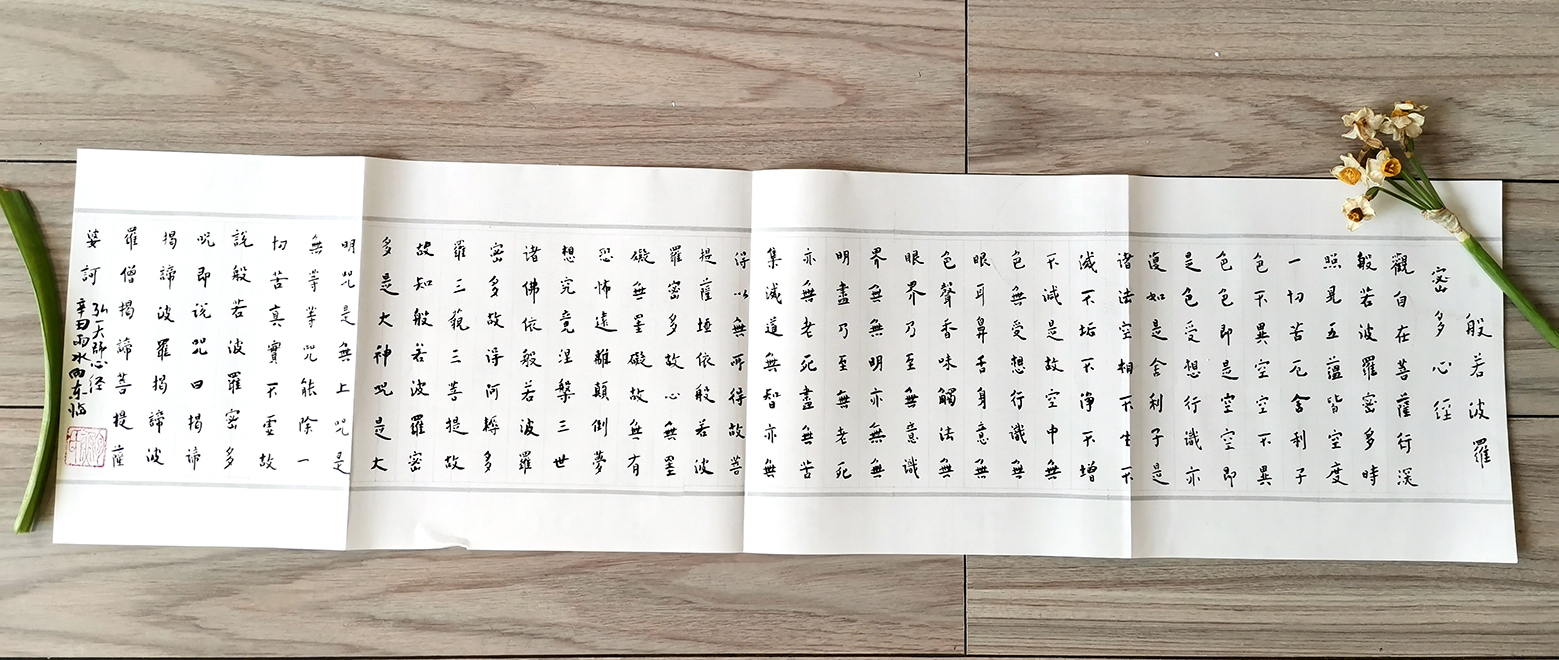 般若波羅
密多心经
觀自在菩薩行深
般若波羅密多時
照見五蘊皆空度
一切苦厄舍利子
色不異空空不異
色色即是空空即
是色受想行識亦
復如是舍利子是
諸法空相不生不
滅不垢不净不增
不減是故空中無
色無受想行識無
眼耳鼻舌身意無
色聲香味觸法無
眼界乃至無意識
界無無明亦無無
明盡乃至無老死
亦無老死盡無苦
集滅道無智亦無
得以無所得故菩
提薩埵依般若波
羅密多故心無罣
礙無罣礙故無有
恐怖遠離顛倒夢
想究竟涅槃三世
諸佛依般若波羅
密多故得阿耨多
羅三藐三菩提故
故知般若波羅密
多是大神咒是大
明咒是無上咒是
無等等咒能除一
切苦真實不虛故
說般若波羅密多
咒即說咒曰揭諦
揭諦波羅揭諦波
羅僧揭諦菩提薩
婆訶
弘一大師心经
辛丑雨水东临